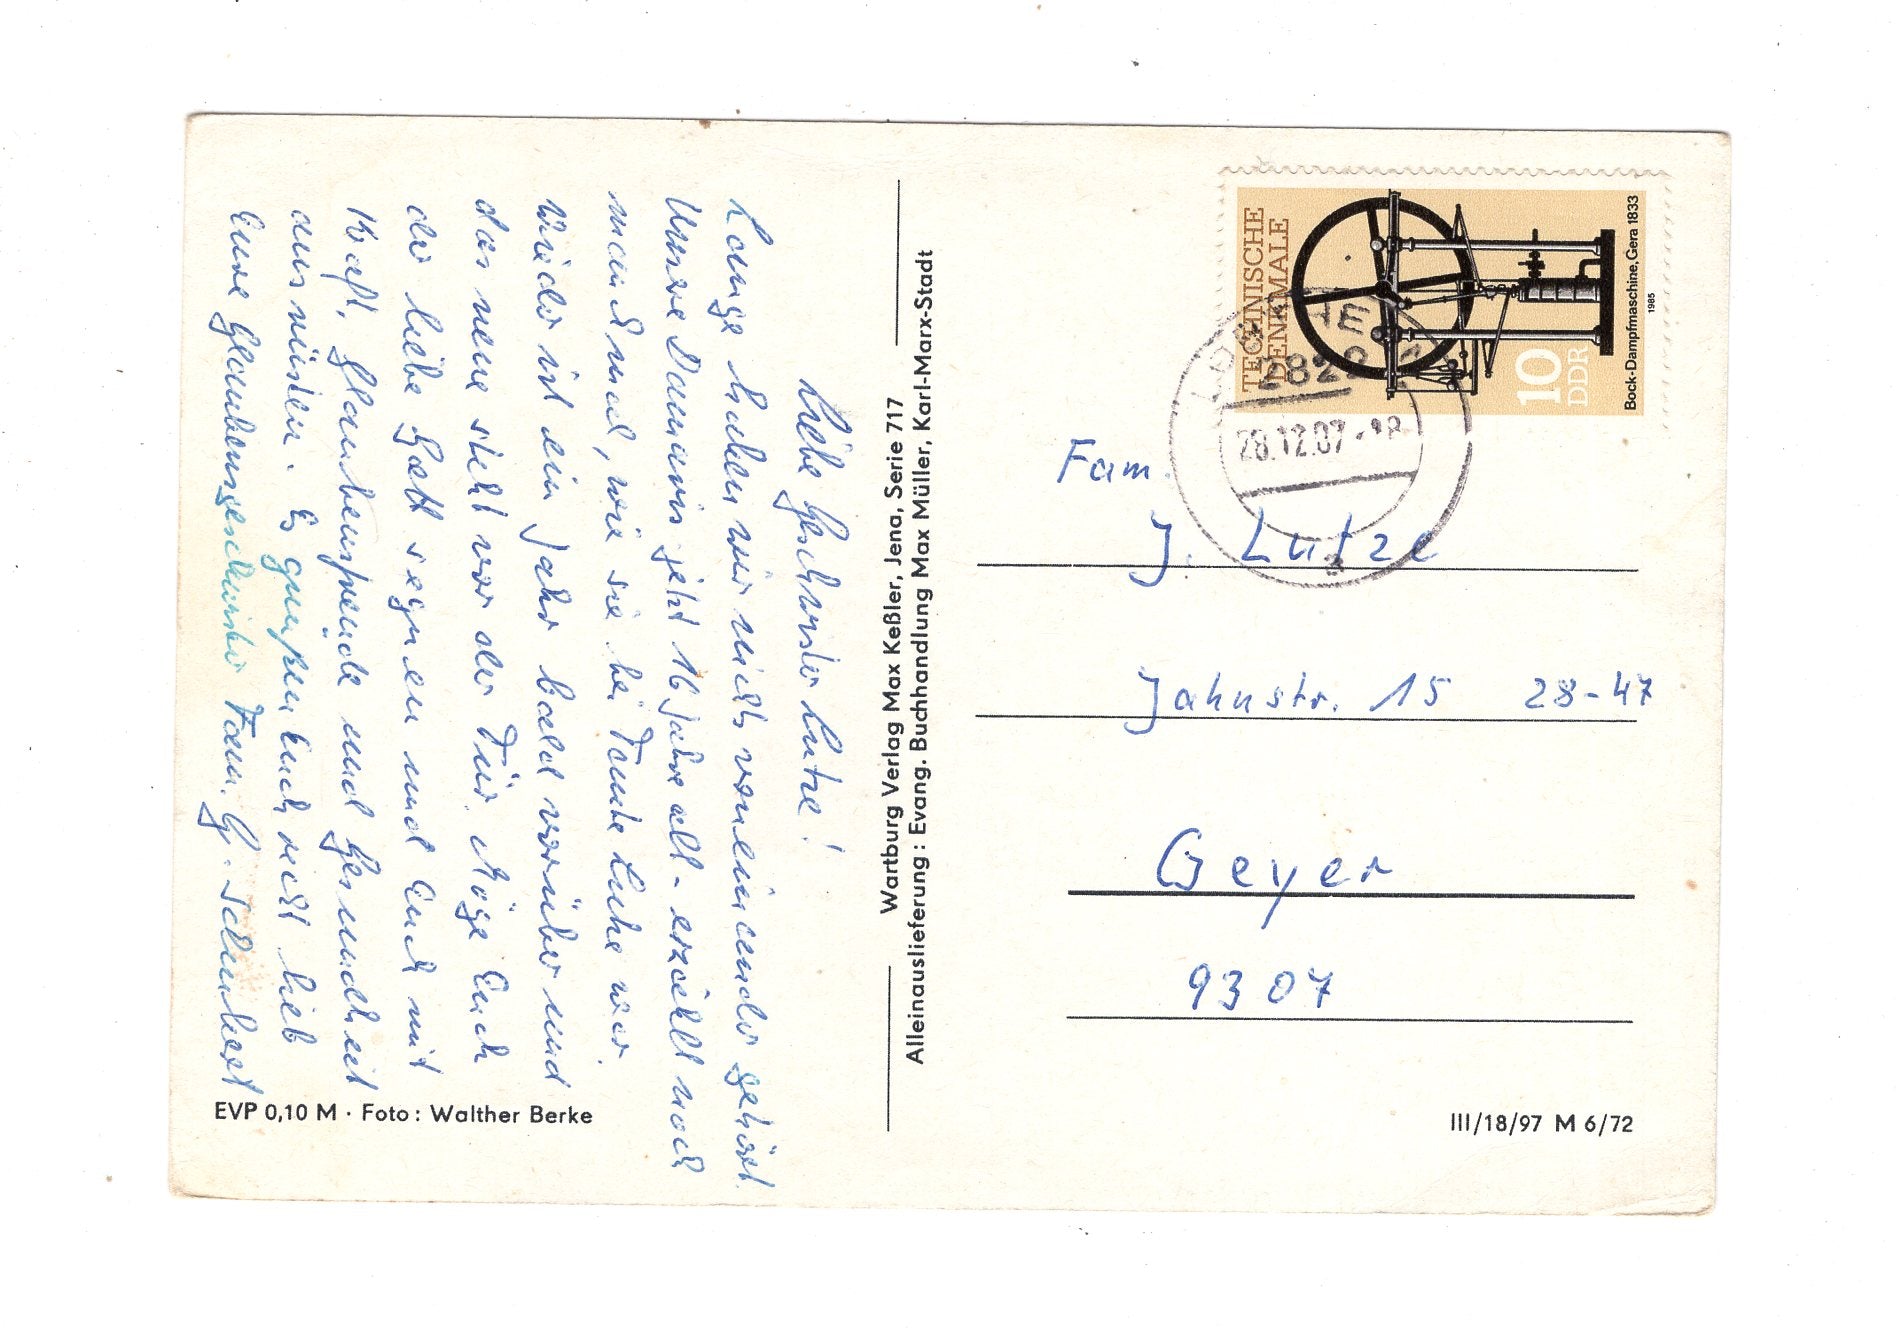 Liebe Geschwister Lutze!
Lange haben wir nichts voneinander gehört.
Unsere Damaris jetzt 16 Jahre alt - erzählt noch
manchmal, wie sie bei Tante Luhe war.
Wieder ist ein Jahr bald vorüber und
das neue steht vor der Tür. Möge Euch
der liebe Gott segnen und Euch mit
Kraft, Glaubensfreude und Gesundheit
ausrüsten. Es grüßen Euch recht lieb
Eure Glaubensgeschwister Fam. G.
EVP 0,10 M · Foto: Walther Berke
Wartburg Verlag Max Keßler, Jena, Serie 717
Alleinauslieferung: Evang. Buchhandlung Max Müller, Karl-Marx-Stadt
TECHNISCHE
DENKMALE
10
DDR
Bock-Dampfmaschine, Gera 1833
1985
282
28.12.87-18
a
Fam.
J. Lutze
Jahnstr. 15 28-47
Geyer
9307
III/18/97 M 6/72